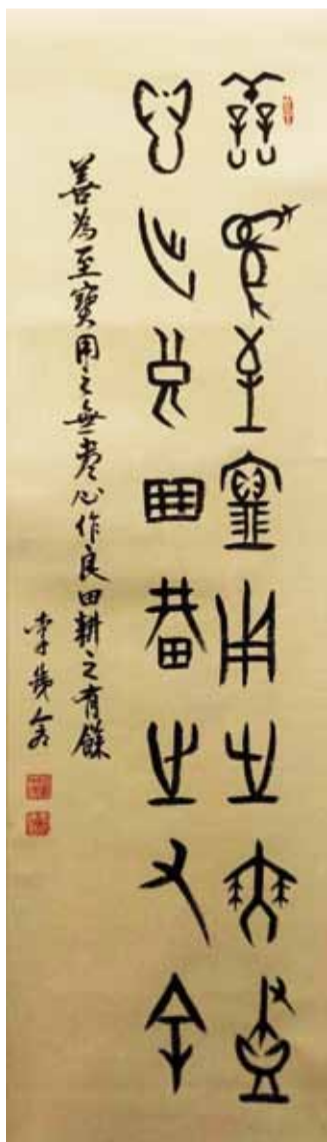 善為至寶用之無盡
心作良田耕之有餘
善為至寶用之無盡心作良田耕之有餘